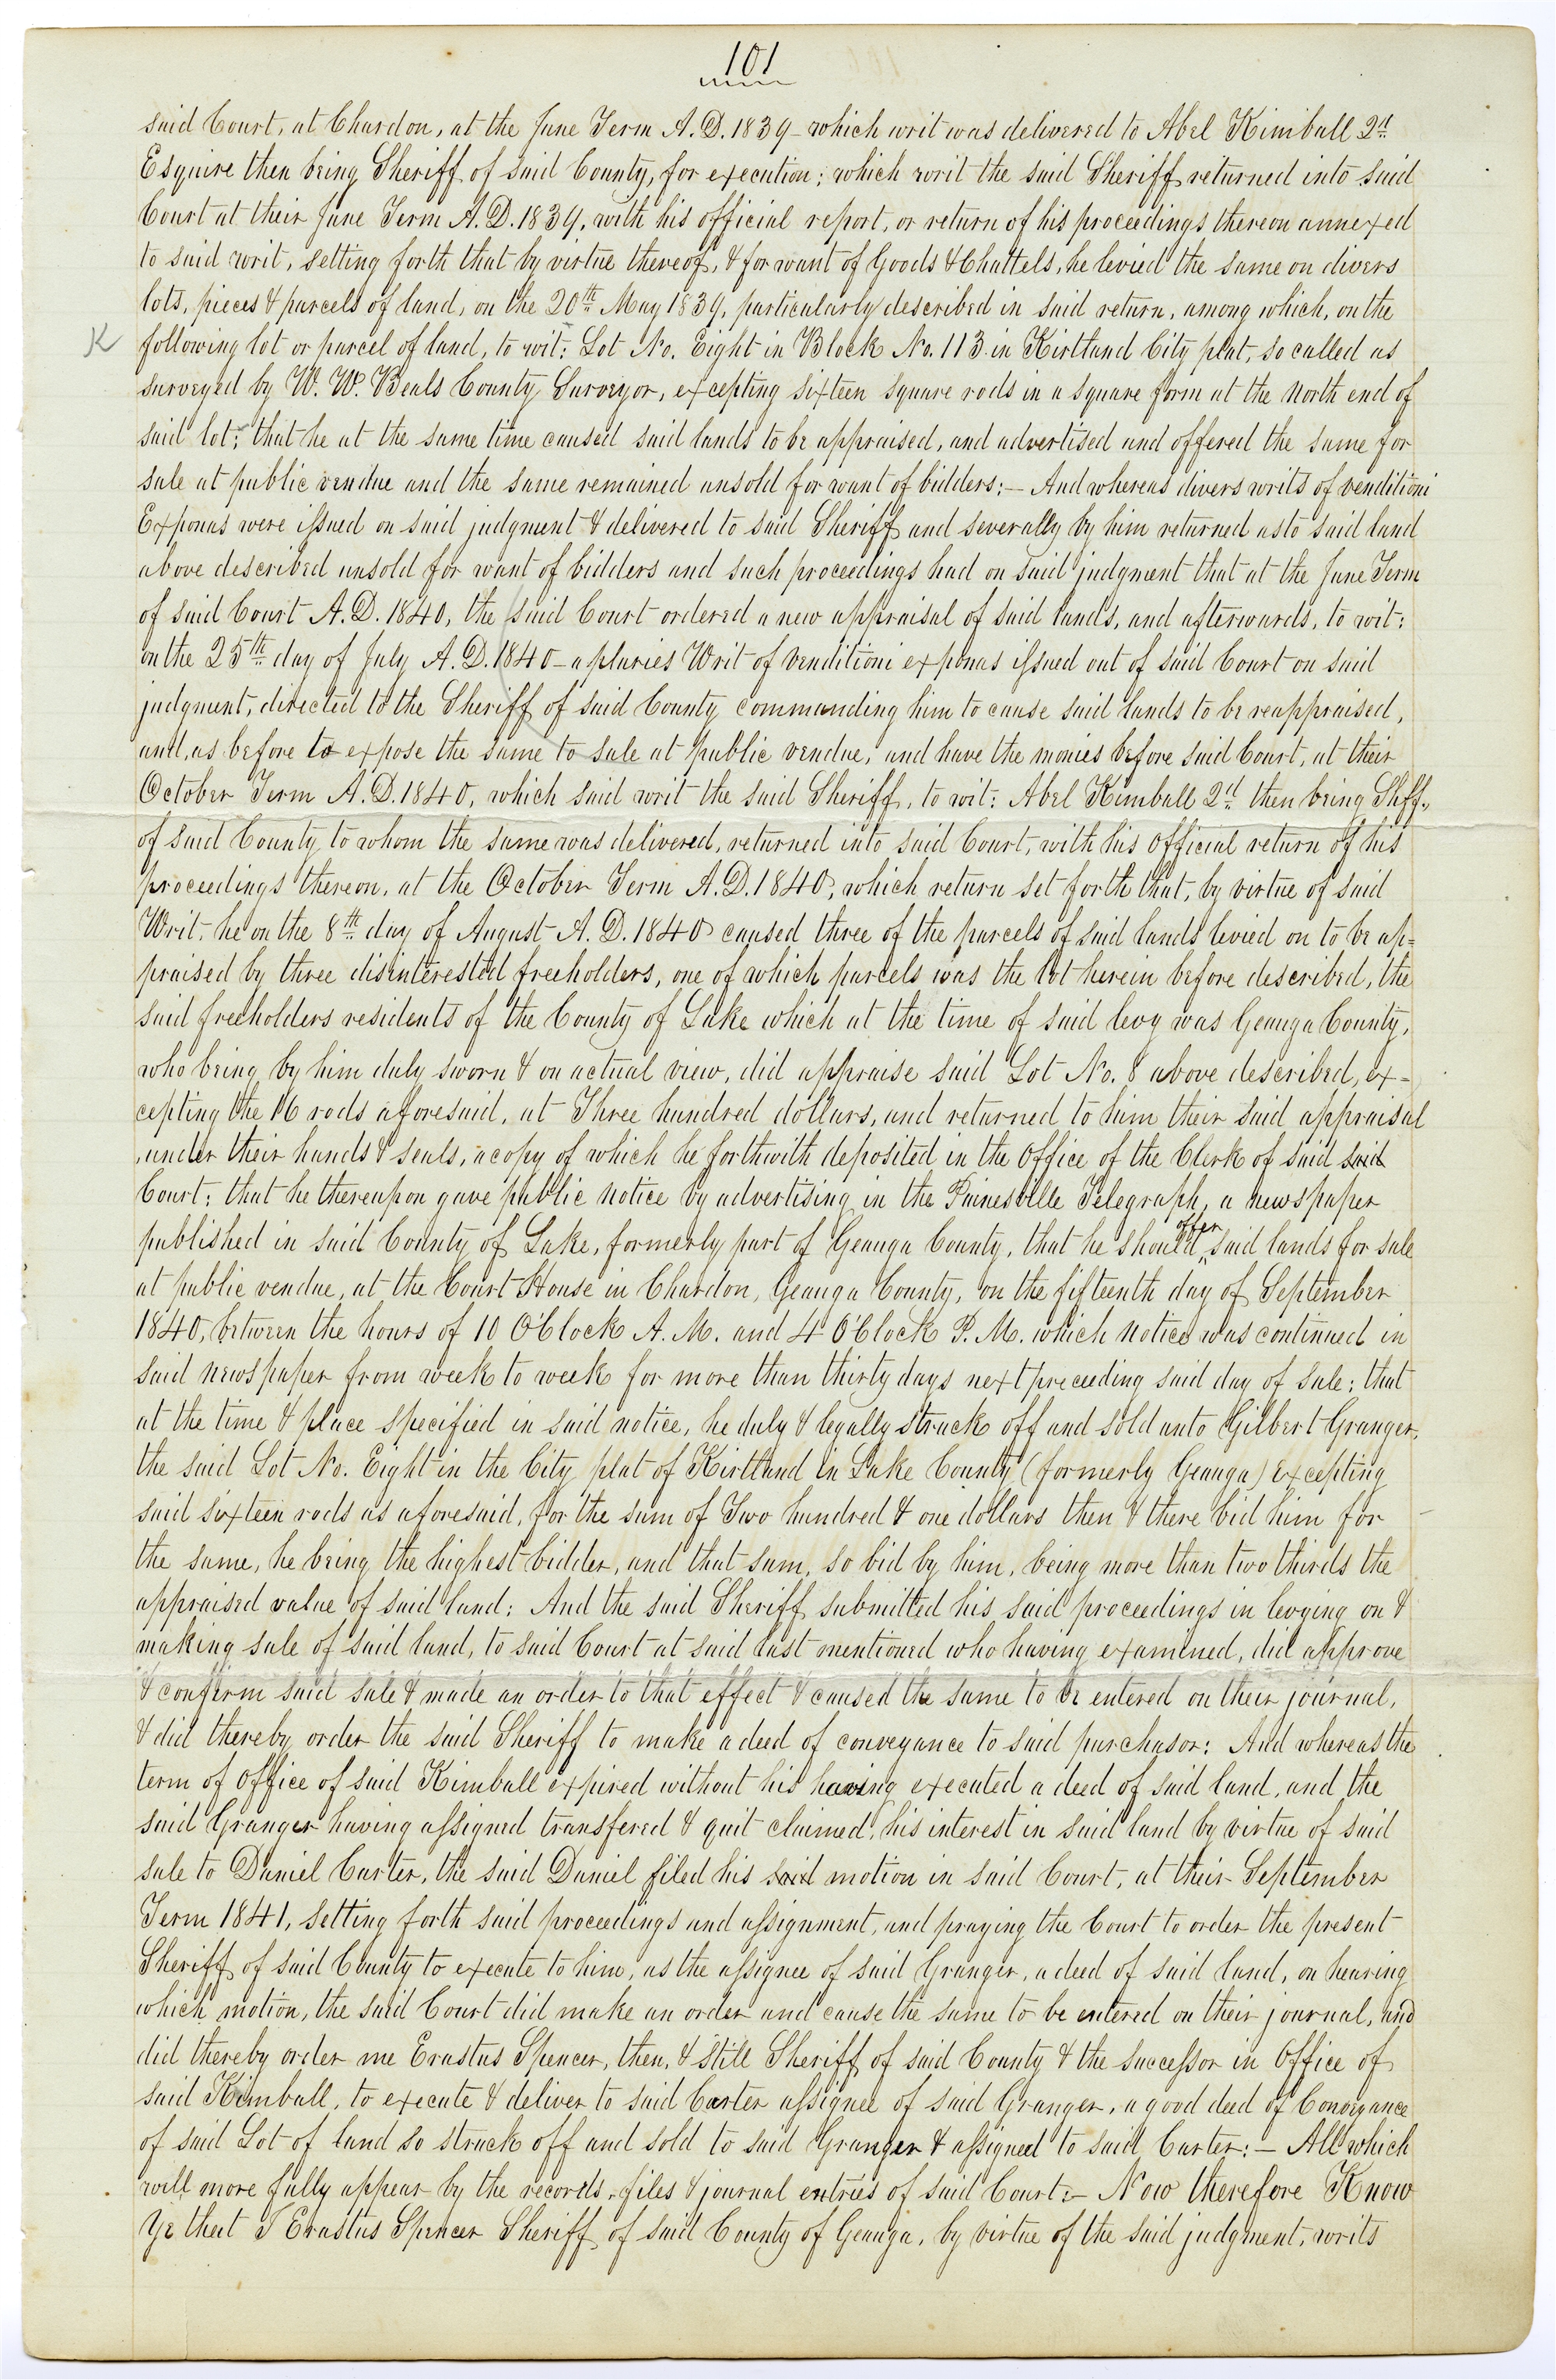 101
said Court, at Chardon, at the June Term A.D. 1839 - which writ was delivered to Abel Kimball 2d
Esquire then being Sheriff of said County, for execution; which writ the said Sheriff returned into said
Court at their June Term A.D. 1839, with his official report, or return of his proceedings thereon annexed
to said writ, setting forth that by virtue thereof, & for want of Goods & Chattels, he levied the same on divers
lots, pieces & parcels of land, on the 20th May 1839, particularly described in said return, among which, on the
K following lot or parcel of land, to wit: Lot No. Eight in Block No. 113 in Kirtland City plat, so called as
surveyed by W. W. Beals County Surveyor, excepting sixteen square rods in a square form at the North end of
said lot; that he at the same time caused said lands to be appraised, and advertised and offered the same for
sale at public vendue and the same remained unsold for want of bidders; - And whereas divers writs of venditioni
Exponas were issued on said judgment & delivered to said Sheriff and severally by him returned as to said land
above described unsold for want of bidders and such proceedings had on said judgment that at the June Term
of said Court A.D. 1840, the said Court ordered a new appraisal of said lands, and afterwards, to wit:
on the 25th day of July A.D. 1840 - a pluries Writ of venditioni exponas issued out of said Court on said
judgment, directed to the Sheriff of said County commanding him to cause said lands to be reappraised,
and, as before to expose the same to sale at public vendue, and have the monies before said Court, at their
October Term A.D. 1840, which said writ the said Sheriff, to wit: Abel Kimball 2d then being Shff.,
of said County to whom the same was delivered, returned into said Court, with his official return of his
proceedings thereon, at the October Term A.D. 1840, which return set forth that, by virtue of said
Writ, he on the 8th day of August A.D. 1840 caused three of the parcels of said lands levied on to be ap=
praised by three disinterested freeholders, one of which parcels was the lot herein before described, the
said freeholders residents of the County of Lake which at the time of said levy was Geauga County,
who being by him duly sworn & on actual view, did appraise said Lot No. 8 above described, ex-
cepting the 16 rods aforesaid, at Three hundred dollars, and returned to him their said appraisal
under their hands & seals, a copy of which he forthwith deposited in the Office of the Clerk of said said
Court; that he thereupon gave public notice by advertising in the Painesville Telegraph, a newspaper
published in said County of Lake, formerly part of Geauga County, that he should offer said lands for sale
at public vendue, at the Court House in Chardon, Geauga County, on the fifteenth day of September
1840, between the hours of 10 O'Clock A. M. and 4 O'Clock P. M. which notice was continued in
said newspaper from week to week for more than thirty days next preceeding said day of sale; that
at the time & place specified in said notice, he duly & legally struck off and sold unto Gilbert Granger,
the said Lot No. Eight in the City plat of Kirtland in Lake County (formerly Geauga) excepting
said sixteen rods as aforesaid, for the sum of Two hundred & one dollars then & there bid him for
the same, he being the highest bidder, and that sum, so bid by him, being more than two thirds the
appraised value of said land: And the said Sheriff submitted his said proceedings in levying on &
making sale of said land, to said Court at said last mentioned who having examined, did approve
& confirm said sale & made an order to that effect & caused the same to be entered on their journal,
& did thereby order the said Sheriff to make a deed of conveyance to said purchasor: And whereas the
term of office of said Kimball expired without his having executed a deed of said land, and the
said Granger having assigned transfered & quit claimed, his interest in said land by virtue of said
sale to Daniel Carter, the said Daniel filed his said motion in said Court, at their September
Term 1841, setting forth said proceedings and assignment, and praying the Court to order the present
Sheriff of said County to execute to him, as the assignee of said Granger, a deed of said land, on hearing
which motion, the said Court did make an order and cause the same to be entered on their journal, and
did thereby order me Erastus Spencer, then, & still Sheriff of said County & the successor in Office of
said Kimball, to execute & deliver to said Carter assignee of said Granger, a good deed of Conveyance
of said Lot of land so struck off and sold to said Granger & assigned to said Carter: - All which
will more fully appear by the records, files & journal entries of said Court: - Now therefore Know
Ye that I Erastus Spencer Sheriff of said County of Geauga, by virtue of the said judgment, writs